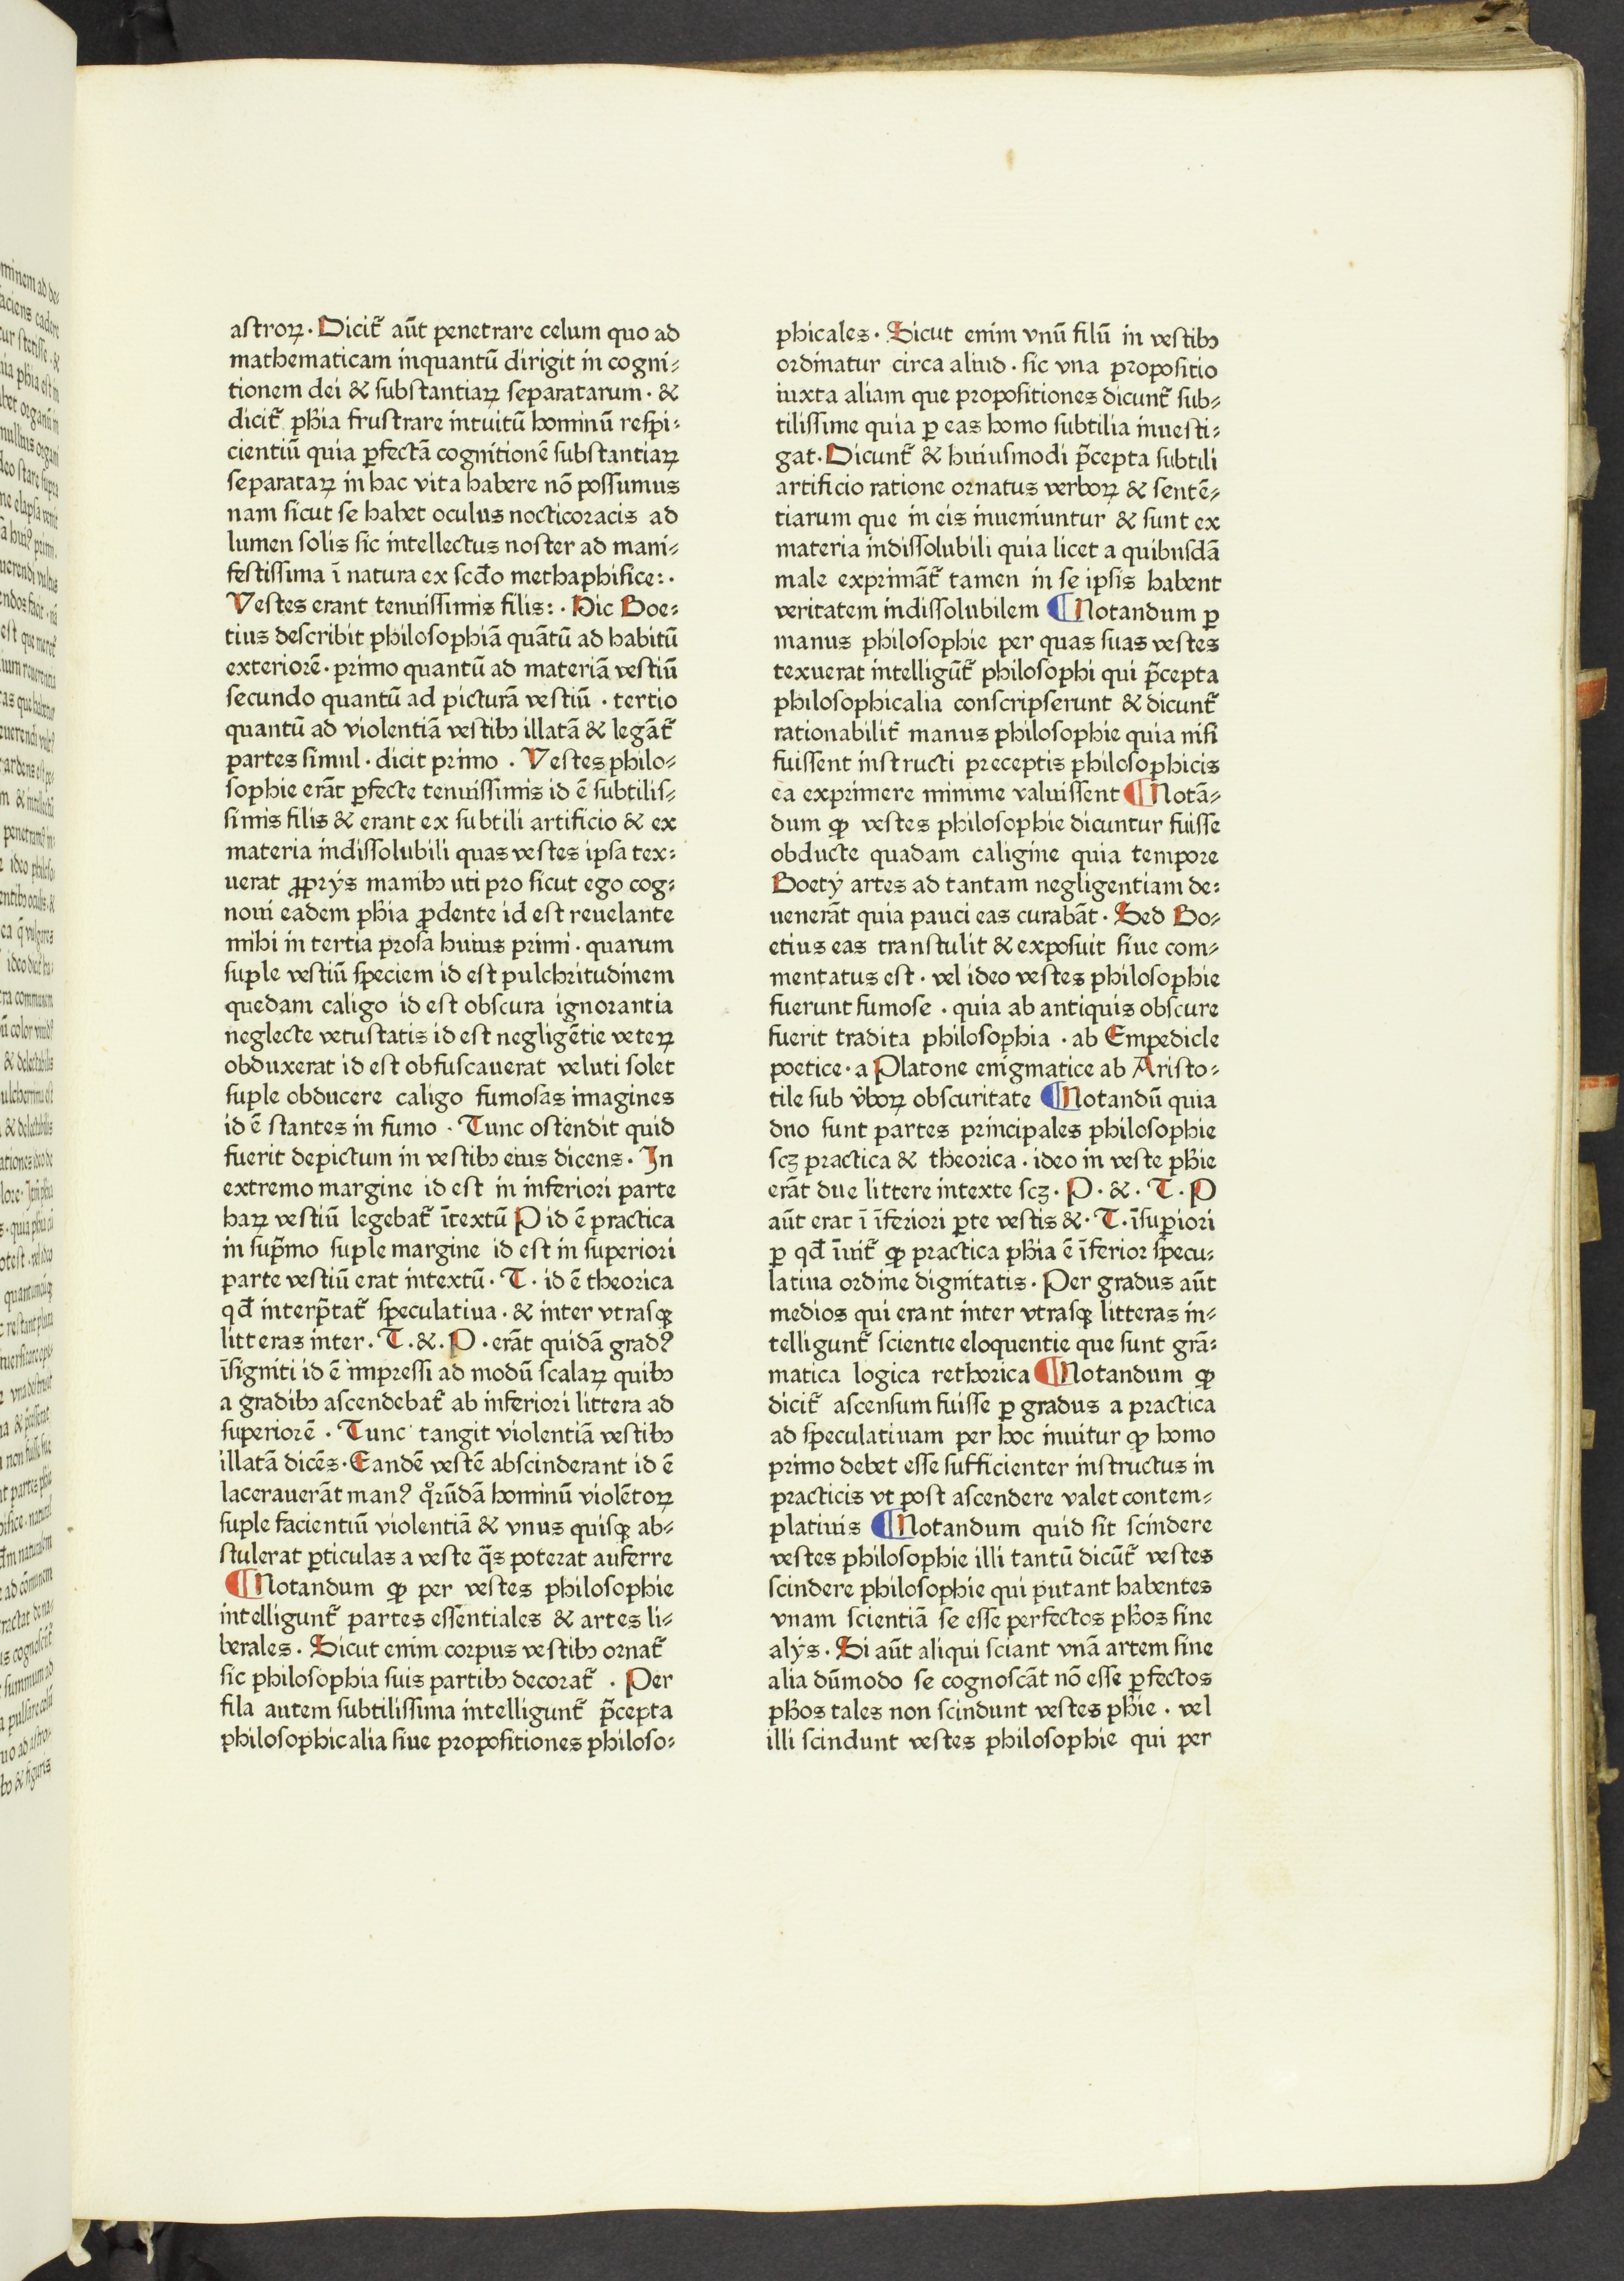 astroꝝ · Dicit᷑ aūt penetrare celum quo ad
mathematicam inquantū dirigit in cogni⸗
tionem dei & substantiaꝝ separatarum · &
dicit᷑ pħia frustrare intuitū hominū respi⸗
cientiū quia ꝑfectā cognitionē substantiaꝝ
separataꝝ in hac vita habere nō possumus
nam sicut se habet oculus nocticoracis ad
lumen solis sic intellectus noster ad mani⸗
festissima ī natura ex scđo methaphisice: ·
Vestes erant tenuissimis filis: · Hic Boe⸗
tius describit philosophiā quātū ad habitū
exteriorē · primo quantū ad materiā vestiū
secundo quantū ad picturā vestiū · tertio
quantū ad violentiā vestibꝫ illatā & legāt᷑
partes simul · dicit primo · Vestes philo⸗
sophie erāt ꝑfecte tenuissimis id ē subtilis⸗
simis filis & erant ex subtili artificio & ex
materia indissolubili quas vestes ipsa tex⸗
uerat ꝓprÿs manibꝫ uti pro sicut ego cog⸗
noui eadem pħia ꝓdente id est reuelante
mihi in tertia prosa huius primi · quarum
suple vestiū speciem id est pulchritudinem
quedam caligo id est obscura ignorantia
neglecte vetustatis id est negligētie veteꝝ
obduxerat id est obfuscauerat veluti solet
suple obducere caligo fumosas imagines
id ē stantes in fumo · Tunc ostendit quid
fuerit depictum in vestibꝫ eius dicens · In
extremo margine id est in inferiori parte
haꝝ vestiū legebat᷑ ītextū P id ē practica
in sup̄mo suple margine id est in superiori
parte vestiū erat intextū · T · id ē theorica
qđ interp̄tat᷑ speculatiua · & inter vtrasqꝫ
litteras inter · T · & · P · erāt quidā gradꝰ
īsigniti id ē impressi ad modū scalaꝝ quibꝫ
a gradibꝫ ascendebat᷑ ab inferiori littera ad
superiorē · Tunc tangit violentiā vestibꝫ
illatā dicēs · Eandē vestē abscinderant id ē
lacerauerāt manꝰ qͦrūdā hominū violētoꝝ
suple facientiū violentiā & vnus quisqꝫ ab⸗
stulerat ꝑticulas a veste q̄s poterat auferre
¶ Notandum ꝙ per vestes philosophie
intelligunt᷑ partes essentiales & artes li⸗
berales · Sicut enim corpus vestibꝫ ornat᷑
sic philosophia suis partibꝫ decorat᷑ · Per
fila autem subtilissima intelligunt᷑ p̄cepta
philosophicalia siue propositiones philoso⸗
phicales · Sicut enim vnū filū in vestibꝫ
ordinatur circa aliud · sic vna propositio
iuxta aliam que propositiones dicunt᷑ sub⸗
tilissime quia ꝑ eas homo subtilia inuesti⸗
gat · Dicunt᷑ & huiusmodi p̄cepta subtili
artificio ratione ornatus verboꝝ & sentē⸗
tiarum que in eis inueniuntur & sunt ex
materia indissolubili quia licet a quibusdā
male exprimāt᷑ tamen in se ipsis habent
veritatem indissolubilem ¶ Notandum ꝑ
manus philosophie per quas suas vestes
texuerat intelligūt᷑ philosophi qui p̄cepta
philosophicalia conscripserunt & dicunt᷑
rationabilit᷑ manus philosophie quia nisi
fuissent instructi preceptis philosophicis
ea exprimere minime valuissent ¶ Notā⸗
dum ꝙ vestes philosophie dicuntur fuisse
obducte quadam caligine quia tempore
Boetÿ artes ad tantam negligentiam de⸗
uenerāt quia pauci eas curabāt · Sed Bo⸗
etius eas transtulit & exposuit siue com⸗
mentatus est · vel ideo vestes philosophie
fuerunt fumose · quia ab antiquis obscure
fuerit tradita philosophia · ab Empedicle
poetice · a Platone enigmatice ab Aristo⸗
tile sub v̄boꝝ obscuritate ¶ Notandū quia
duo sunt partes principales philosophie
scꝫ practica & theorica · ideo in veste pħie
erāt due littere intexte scꝫ · P · & · T · P
aūt erat ī īferiori ꝑte vestis & · T · īsuperiori
ꝑ qđ īnuit᷑ ꝙ practica pħia ē īferior specu⸗
latiua ordine dignitatis · Per gradus aūt
medios qui erant inter vtrasqꝫ litteras in⸗
telligunt᷑ scientie eloquentie que sunt grā⸗
matica logica rethorica ¶ Notandum ꝙ
dicit᷑ ascensum fuisse ꝑ gradus a practica
ad speculatiuam per hoc inuitur ꝙ homo
primo debet esse sufficienter instructus in
practicis vt post ascendere valet contem⸗
platiuis ¶ Notandum quid sit scindere
vestes philosophie illi tantū dicūt᷑ vestes
scindere philosophie qui putant habentes
vnam scientiā se esse perfectos pħos sine
alÿs · Si aūt aliqui sciant vnā artem sine
alia dūmodo se cognoscāt nō esse ꝑfectos
pħos tales non scindunt vestes pħie · vel
illi scindunt vestes philosophie qui per